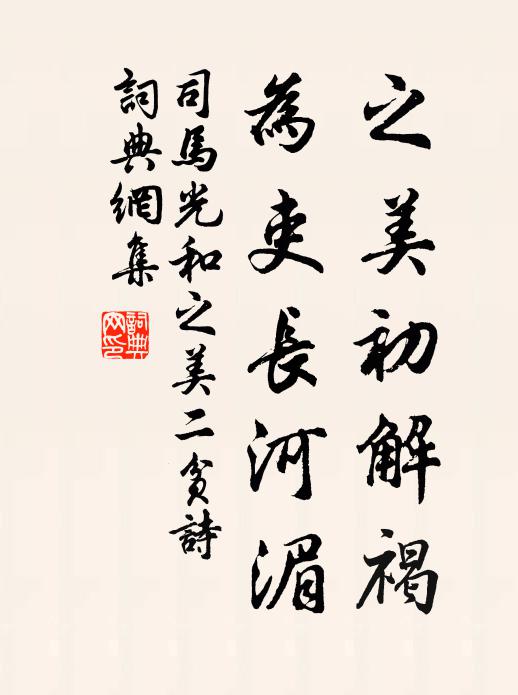 之美初解褐
為吏長河湄
司馬光和之美二貧詩
詞典網集
詞典
網印